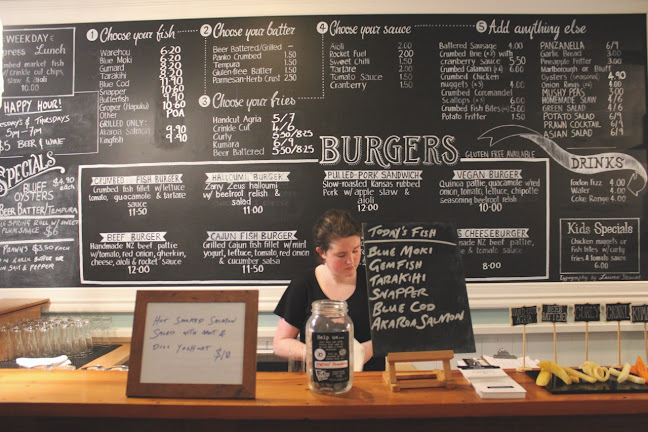 WEEKDAY
press Lunch
Crumbed market fish
w/crinkle cut chips,
slaw & aioli
10.00
HAPPY HOUR!
Tuesday's & Thursdays
5pm-7pm
$5 BEER & WINE
SPECIALS
$4.90 each
BLUFF OYSTERS
BEER BATTER/TEMPURA
SPRING ROLL w/ SWEET
PLUM SAUCE $6
PRAWNS $3.50 EACH
IN GARLIC BUTTER OR
SALT & PEPPER
1 Choose your fish
Warehou 6.20
Blue Moki 6.20
Gurnard 6.20
Tarakihi 7.20
Blue Cod
Snapper
Butterfish
Groper (Hapuku) POA
Other POA
GRILLED ONLY:
Akaroa Salmon 9.90
Kingfish 9.90
2 Choose your batter
Beer Battered/Grilled -
Panko Crumbed 1.50
Tempura 1.50
Gluten-free Batter 1.50
Parmesan-Herb Crust 2.50
3 Choose your fries
Handcut Agria 5/7
Crinkle Cut 4/6
Curly 5.50/8.25
Kumara 5/8
Beer Battered 5.50/8.25
4 Choose your sauce
Aioli 2.00
Rocket Fuel 2.00
Sweet Chilli 1.50
Tartare 2.00
Tomato Sauce 1.50
Cranberry 1.50
5 Add anything else
Battered Sausage 4.00
Crumbed Brie (x3) with
cranberry sauce 5.50
Crumbed Calamari (x4) 6.60
Crumbed Chicken
nuggets (x3) 4.00
Crumbed Coromandel
Scallops (x3) 6.00
Crumbed Fish Bites (x5) 5.00
Potato Fritter 1.50
PANZANELLA 6/9
Garlic Bread 3.00
Pineapple Fritter 3.00
Marlborough or Bluff
Oysters (seasonal) 4.90
Onion Rings (x6) 4.00
MUSHY PEAS 3.00
HOMEMADE SLAW 4/6
GREEN SALAD 4/6
POTATO SALAD 6/9
PRAWN COCKTAIL 6/9
ASIAN SALAD 6/9
BURGERS
GLUTEN FREE AVAILABLE
CRUMBED FISH BURGER
Crumbed fish fillet w/lettuce
tomato, guacamole & tartare
sauce
11.50
HALLOUMI BURGER
Zany Zeus halloumi
w/ beetroot relish &
salad
11.00
PULLED PORK SANDWICH
Slow-roasted Kansas rubbed
Pork w/ apple slaw &
aioli
12.00
VEGAN BURGER
Quinoa pattie, guacamole w/red
onion, tomato, lettuce, chipotle
seasoning beetroot relish
10.00
BEEF BURGER
Handmade NZ beef pattie,
w/tomato, red onion, gherkin,
cheese, aioli & rocket sauce
12.00
CAJUN FISH BURGER
Grilled Cajun fish fillet w/mint
yogurt, lettuce, tomato, red onion
& cucumber salsa
11.50
CHEESEBURGER
Handmade NZ beef
w/ tomato sauce
8.00
DRINKS
Foxton Fizz
Water
Coke Range
Kids Specials
Chicken nuggets or
Fish bites w/ curly
fries & tomato sauce
6.00
Typography by Lauren
TODAY'S FISH
BLUE MOKI
GEMFISH
TARAKIHI
SNAPPER
BLUE COD
AKAROA SALMON
HOT SMOKED SALMON
SALAD WITH MINT &
DILL YOGHURT $10
Help us
CURLY
KUMARA